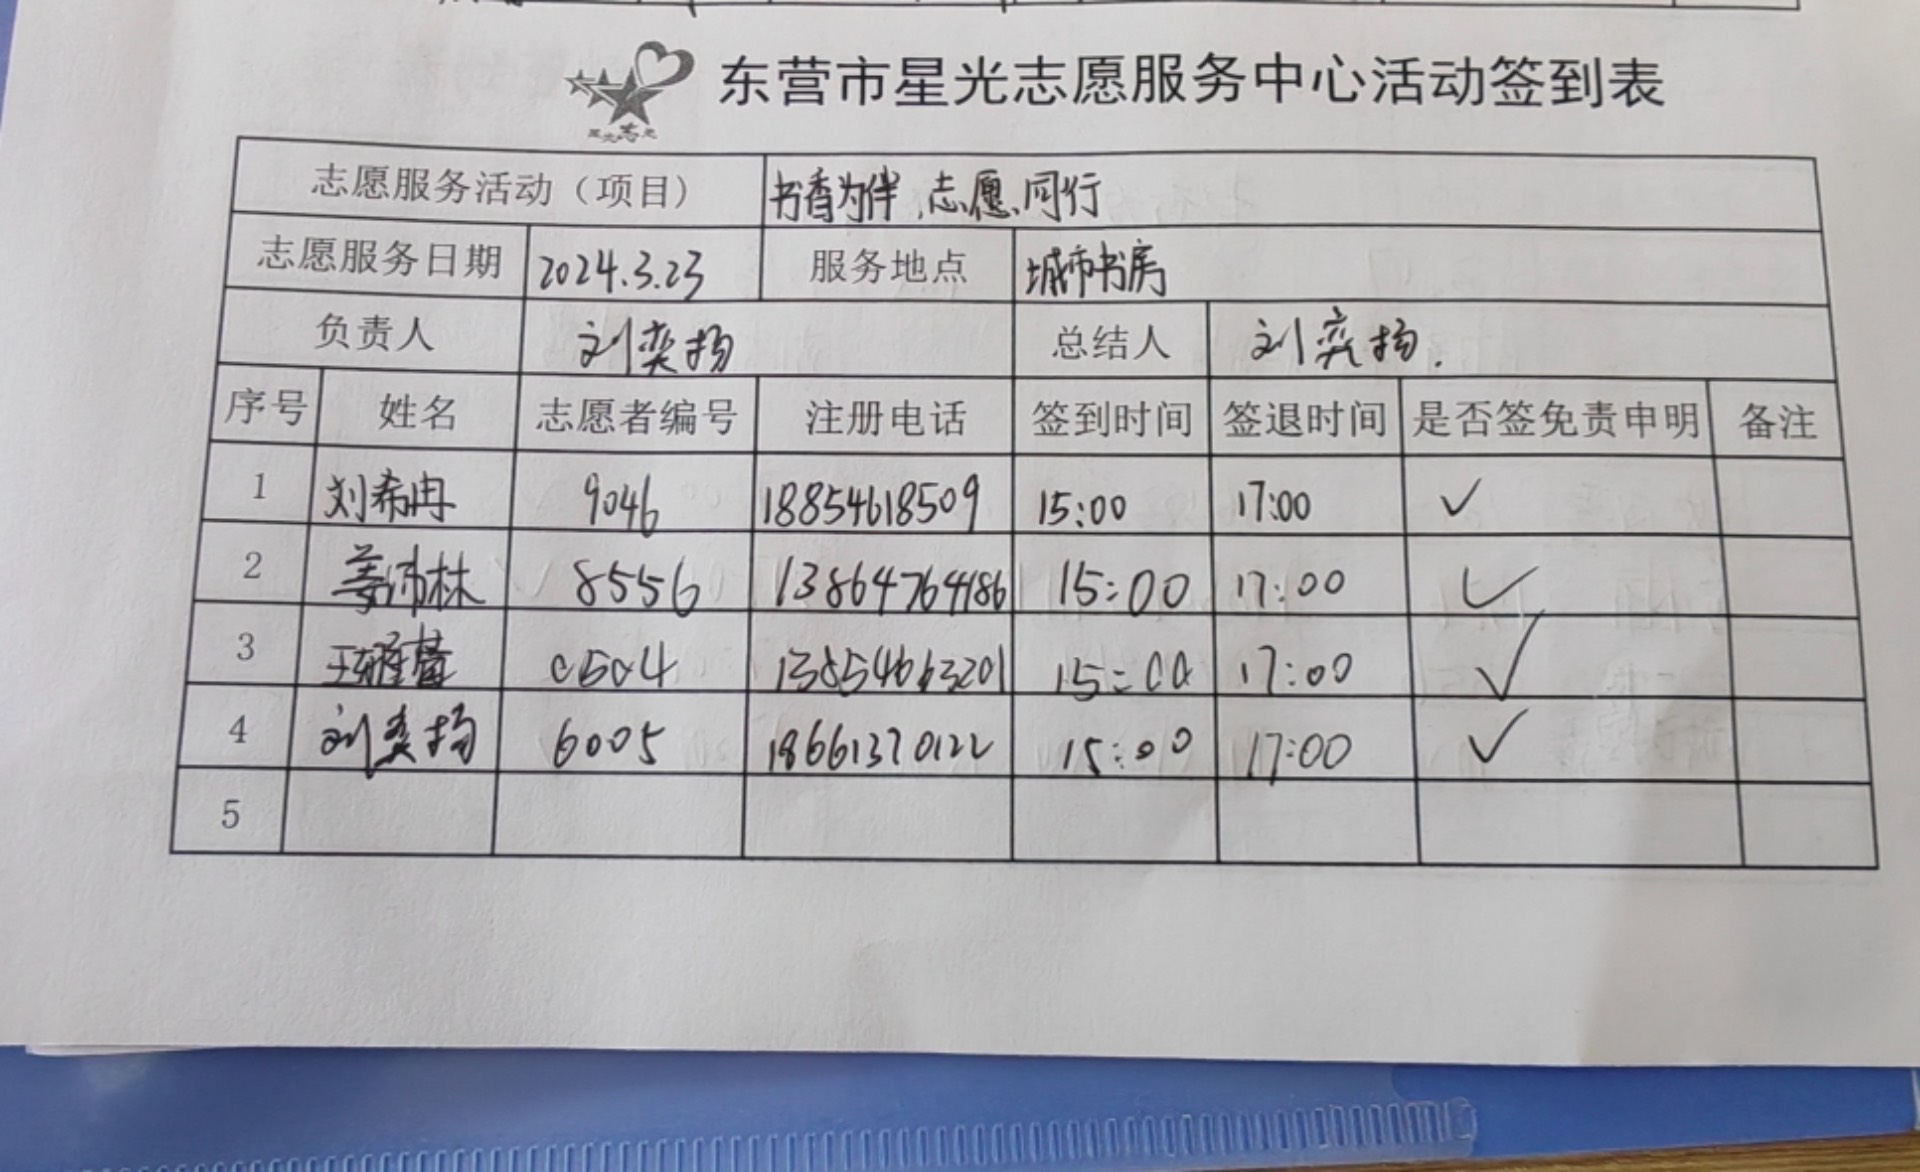 星光志愿
东营市星光志愿服务中心活动签到表
志愿服务活动（项目） 书香为伴，志愿同行
志愿服务日期 2024.3.23 服务地点 城市书房
负责人 刘奕扬 总结人 刘奕扬.
序号 姓名 志愿者编号 注册电话 签到时间 签退时间 是否签免责申明 备注
1 刘希冉 9046 18854618509 15:00 17:00 ✓
2 8556 13864764186 15:00 17:00 ✓
3 0504 13854663201 15:00 17:00 ✓
4 刘奕扬 6005 18661370122 15:00 17:00 ✓
5